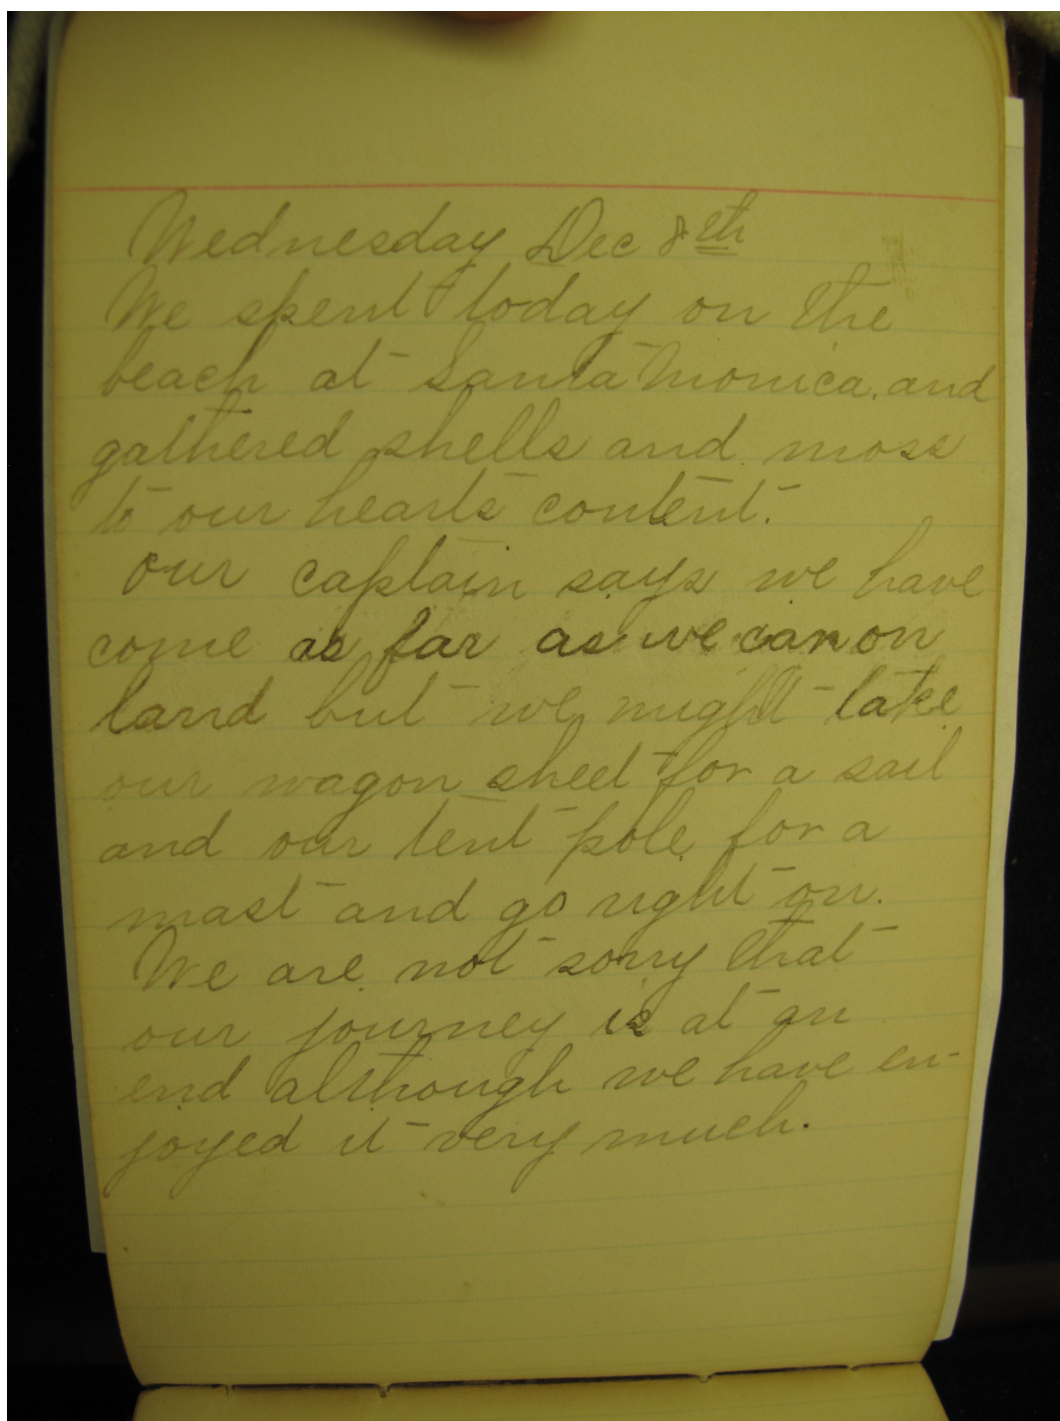 Wednesday Dec 8th
We spent today on the
beach at Santa Monica. and
gathered shells and moss
to our hearts content.
Our captain says we have
come as far as we can on
land but we might take
our wagon sheet for a sail
and our tent pole for a
mast and go right on.
We are not sorry that
our journey is at an
end although we have en-
joyed it very much.